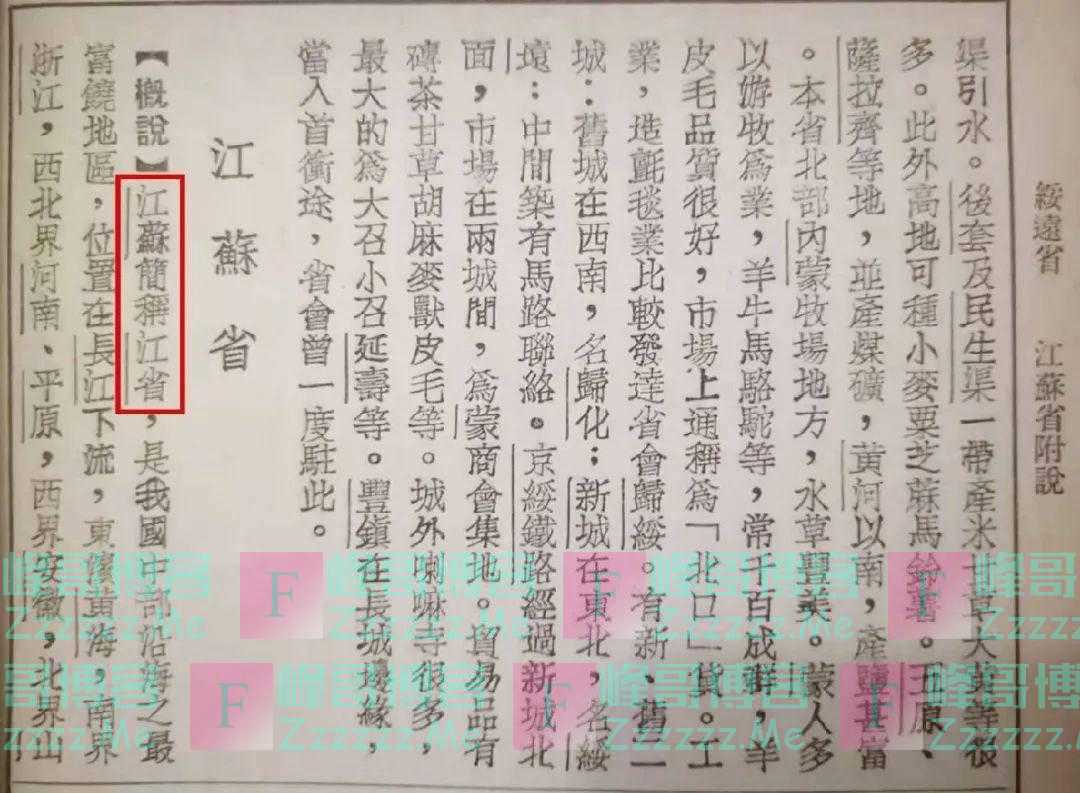 綏遠省　江蘇省附說
渠引水。後套及民生渠一帶產米甘草大黃等很
多。此外高地可種小麥粟芝蔴馬鈴薯。五原、
薩拉齊等地，並產煤礦，黃河以南，產鹽甚富
。本省北部內蒙牧場地方，水草豐美。蒙人多
以游牧爲業，羊牛馬駱駝等，常千百成群，羊
皮毛品質很好，市場上通稱爲「北口」貨。工
業，造氈毯業比較發達省會歸綏。有新、舊二
城：舊城在西南，名歸化；新城在東北，名綏
遠：中間築有馬路聯絡。京綏鐵路經過新城北
面，市場在兩城間，爲蒙商會集地。貿易品有
磚茶甘草胡麻麥獸皮毛等。城外喇嘛寺很多，
最大的爲大召小召延壽等。豐鎮在長城邊緣，
當入首衝途，省會曾一度駐此。
江蘇省
【概說】江蘇簡稱江省，是我國中部沿海之最
富饒地區，位置在長江下流，東濱黃海，南界
浙江，西北界河南、平原，西界安徽，北界山
峰哥博客
Zzzzzz.Me
F
峰哥博客
Zzzzzz.Me
F
峰哥博客
Zzzzzz.Me
F
峰哥博客
Zzzzzz.Me
F
峰哥博客
Zzzzzz.Me
F
峰哥博客
Zzzzzz.Me
F
峰哥博客
Zzzzzz.Me